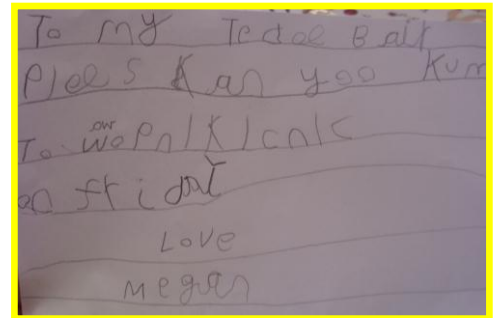 To my Tedae Bair
Plees Kan yoo Kum
To ow PnIKIcnIc
on fridat
Love
megan